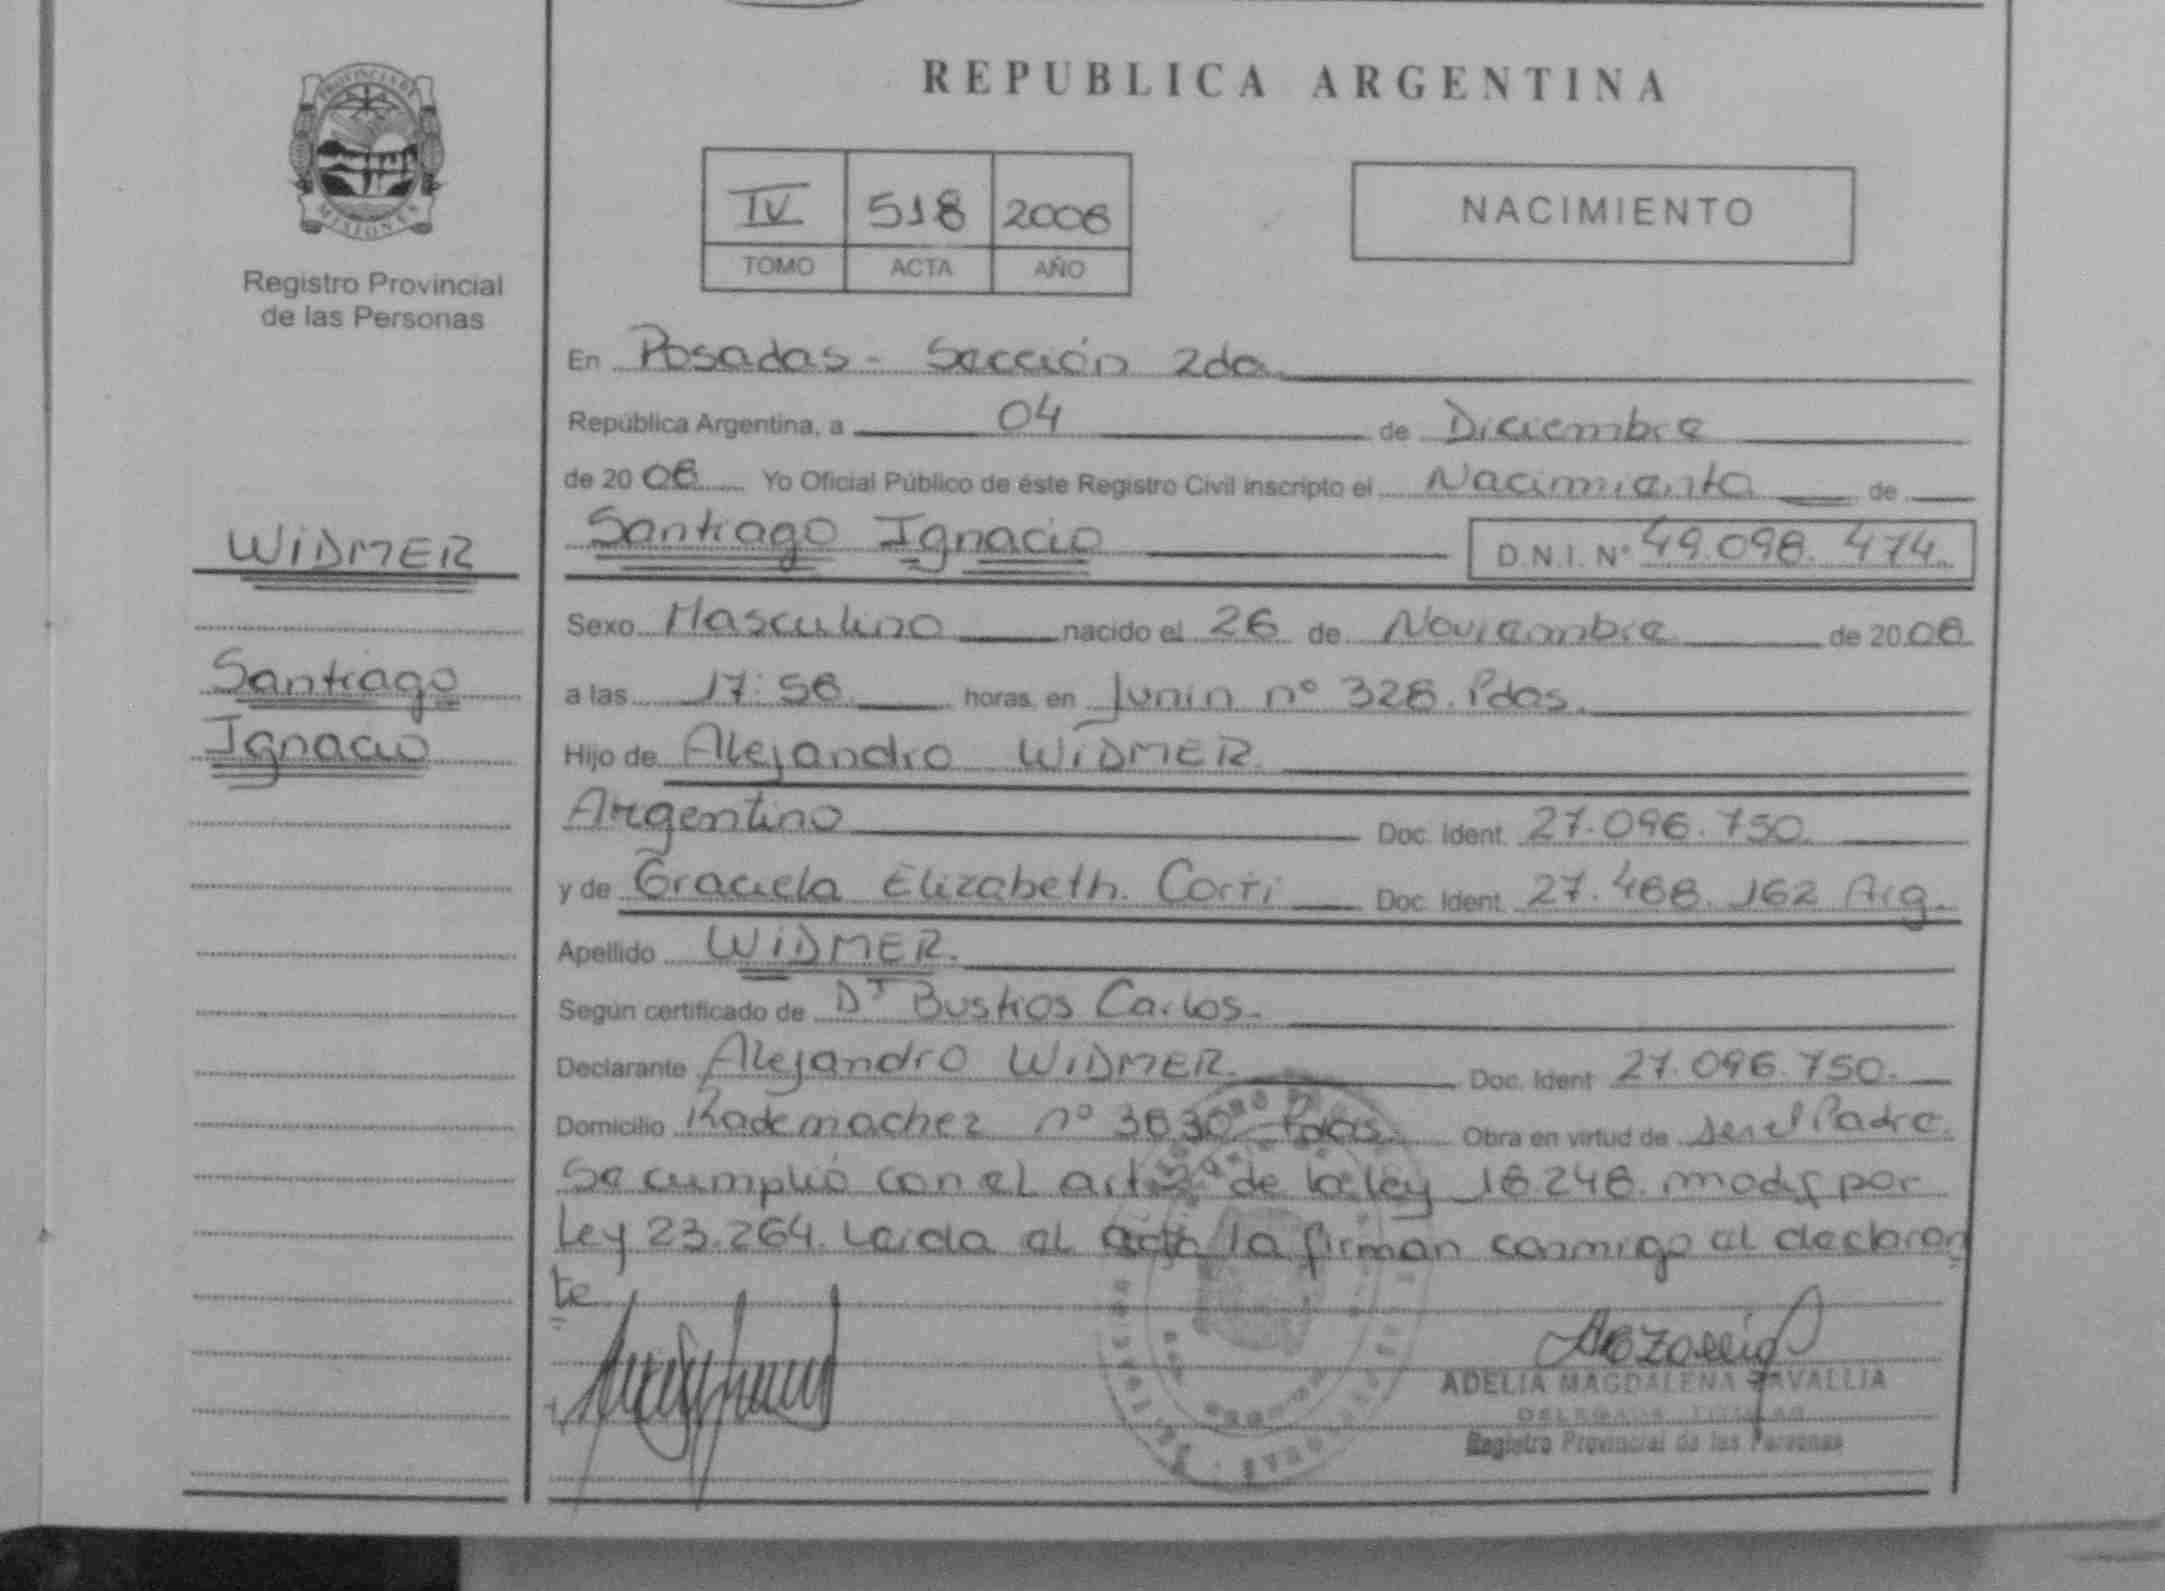 REPUBLICA ARGENTINA
PROVINCIA DE
MISIONES
Registro Provincial
de las Personas
IV 518 2008
TOMO ACTA AÑO
NACIMIENTO
En Posadas - Sección 2da
República Argentina, a 04 de Diciembre
de 20 08 Yo Oficial Público de éste Registro Civil inscripto el Nacimiento de
WIDMER
Santiago Ignacio D.N.I. Nº 49.098.474
Sexo Masculino nacido el 26 de Noviembre de 20 08
Santiago
a las 17:58 horas en Junín nº 328. Pdas.
Ignacio
Hijo de Alejandro WIDMER
Argentino Doc. Ident. 27.096.750.
y de Graciela Elizabeth. Corti Doc. Ident. 27.488.162 Arg.
Apellido WIDMER.
Según certificado de Dr Bustos Carlos.
Declarante Alejandro WIDMER. Doc. Ident 27.096.750.
Domicilio Rademacher nº 3830 Pdas. Obra en virtud de ser el Padre.
Se cumplió con el art de la ley 18.248. modif por
Ley 23.264. Leída el acta la firman conmigo el declaran
te
ADELIA MAGDALENA ZAVALLIA
DELEGADA TITULAR
Registro Provincial de las Personas